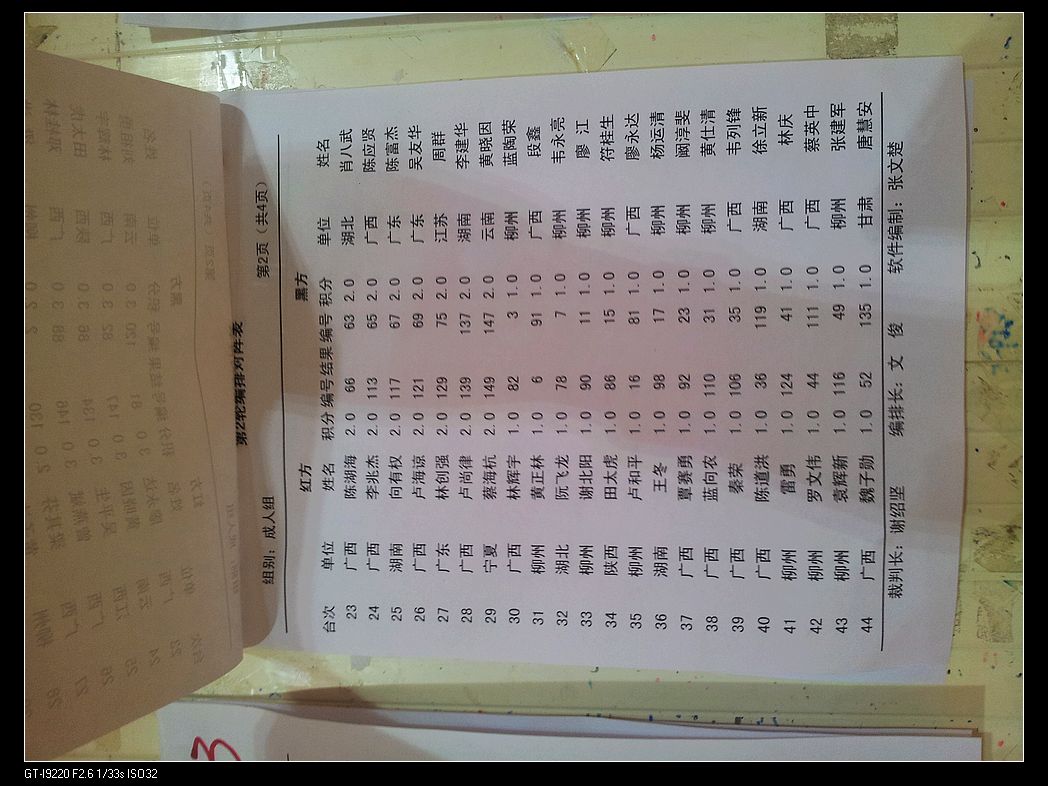 第2轮编排对阵表
组别: 成人组 第2页 (共4页)
红方 黑方
台次 单位 姓名 积分 编号 结果 编号 积分 单位 姓名
23 广西 陈湖海 2.0 66 63 2.0 湖北 肖八武
24 广西 李兆杰 2.0 113 65 2.0 广西 陈应贤
25 湖南 向有权 2.0 117 67 2.0 广东 陈富杰
26 广西 卢海谅 2.0 121 69 2.0 广东 吴友华
27 广东 林创强 2.0 129 75 2.0 江苏 周群
28 广西 卢尚律 2.0 139 137 2.0 湖南 李建华
29 宁夏 蔡海杭 2.0 149 147 2.0 云南 黄晓因
30 广西 林辉宇 1.0 82 3 1.0 柳州 蓝陶荣
31 柳州 黄正林 1.0 6 91 1.0 广西 段鑫
32 湖北 阮飞龙 1.0 78 7 1.0 柳州 韦永亮
33 柳州 谢北阳 1.0 90 11 1.0 柳州 廖 江
34 陕西 田太虎 1.0 86 15 1.0 柳州 符桂生
35 柳州 卢和平 1.0 16 81 1.0 广西 廖永达
36 湖南 王冬 1.0 98 17 1.0 柳州 杨运清
37 广西 覃赛勇 1.0 92 23 1.0 柳州 阚淳斐
38 广西 蓝向农 1.0 110 31 1.0 柳州 黄仕清
39 广西 秦荣 1.0 106 35 1.0 广西 韦列锋
40 广西 陈道洪 1.0 36 119 1.0 湖南 徐立新
41 柳州 雷勇 1.0 124 41 1.0 广西 林庆
42 柳州 罗文伟 1.0 44 111 1.0 广西 蔡英中
43 柳州 袁辉新 1.0 116 49 1.0 柳州 张建军
44 广西 魏子勋 1.0 52 135 1.0 甘肃 唐慧安
裁判长: 谢绍坚 编排长: 文 俊 软件编制: 张文楚
3
GT-I9220 F2.6 1/33s ISO32